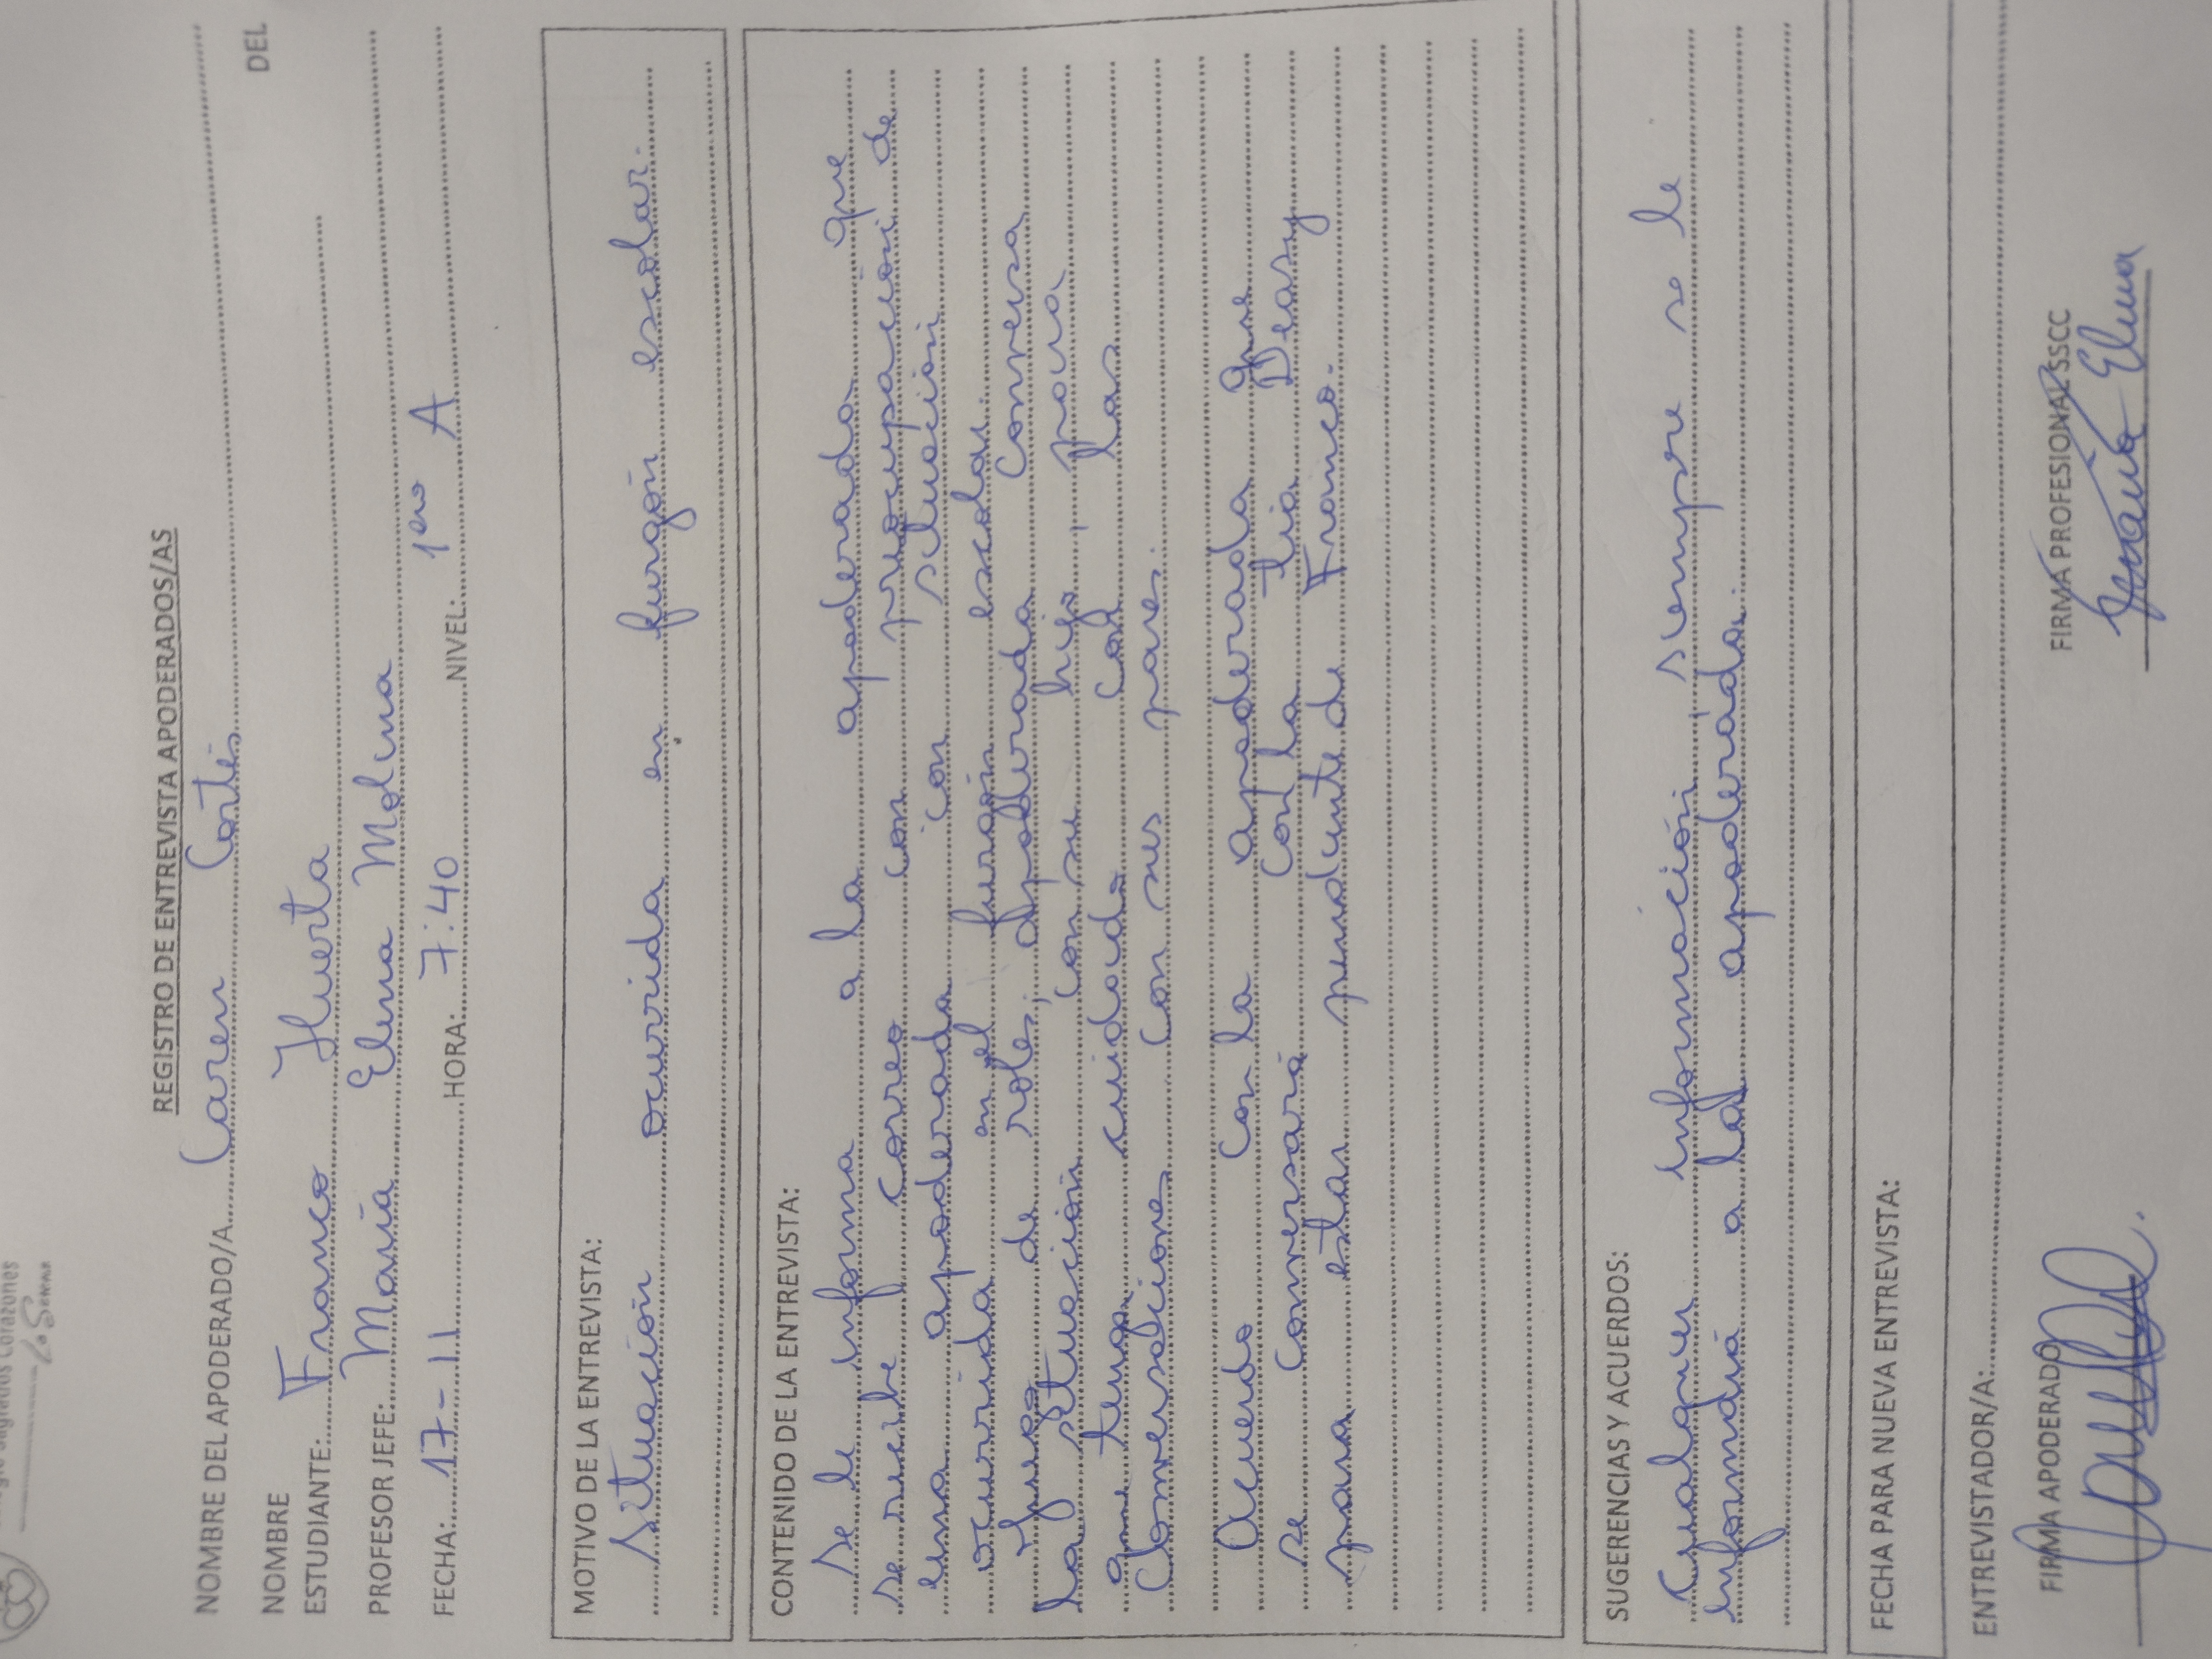 Sagrados Corazones
La Serena
REGISTRO DE ENTREVISTA APODERADOS/AS
NOMBRE DEL APODERADO/A Caren Cortés
NOMBRE DEL
ESTUDIANTE: Franco Huerta
PROFESOR JEFE: María Elena Molina
FECHA: 17-11 HORA: 7:40 NIVEL: 1ero A
MOTIVO DE LA ENTREVISTA:
Situación ocurrida en furgón escolar.
CONTENIDO DE LA ENTREVISTA:
Se le informa a la apoderada que
se recibe correo con preocupación de
una apoderada con situación
ocurrida en el furgón escolar.
Juego de roles, apoderada conversa
la situación con su hijo, para
que tenga cuidado con las
conversaciones con sus pares.
Acuerdo con la apoderada que
se conversará con la tía Deasy
para estar pendiente de Franco.
SUGERENCIAS Y ACUERDOS:
Cualquier información, siempre se le
informará a la apoderada.
FECHA PARA NUEVA ENTREVISTA:
ENTREVISTADOR/A:
FIRMA APODERADO FIRMA PROFESIONAL SSCC
María Elena